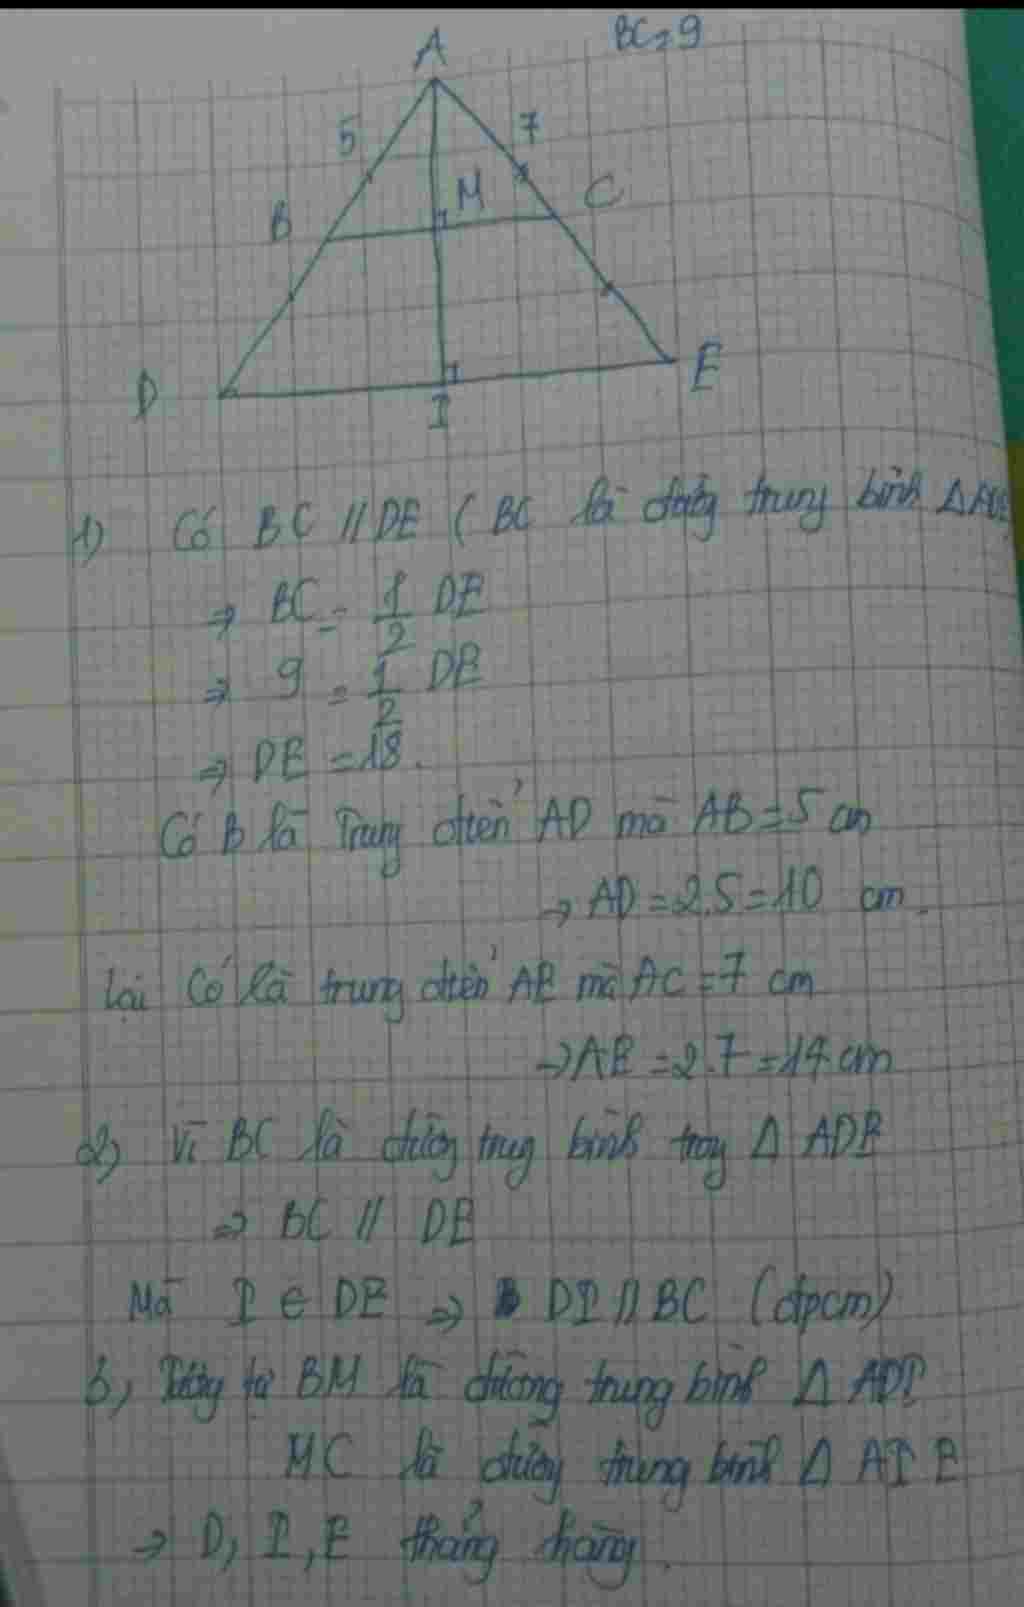 A
BC = 9
5
7
B
M
C
D
I
E
1) Có BC // DE ( BC là đường trung bình Δ ADE
⇒ BC = 1/2 DE
⇒ 9 = 1/2 DE
⇒ DE = 18.
Có B là Trung điểm AD mà AB = 5 cm
→ AD = 2.5 = 10 cm.
Lại Có là trung điểm AE mà AC = 7 cm
→ AE = 2.7 = 14 cm
2) Vì BC là đường trung bình trong Δ ADE
⇒ BC // DE
Mà I ∈ DE ⇒ DI // BC (đpcm)
3, Tương tự BM là đường trung bình Δ ADI
MC là đường trung bình Δ AIE
→ D, I, E thẳng hàng.